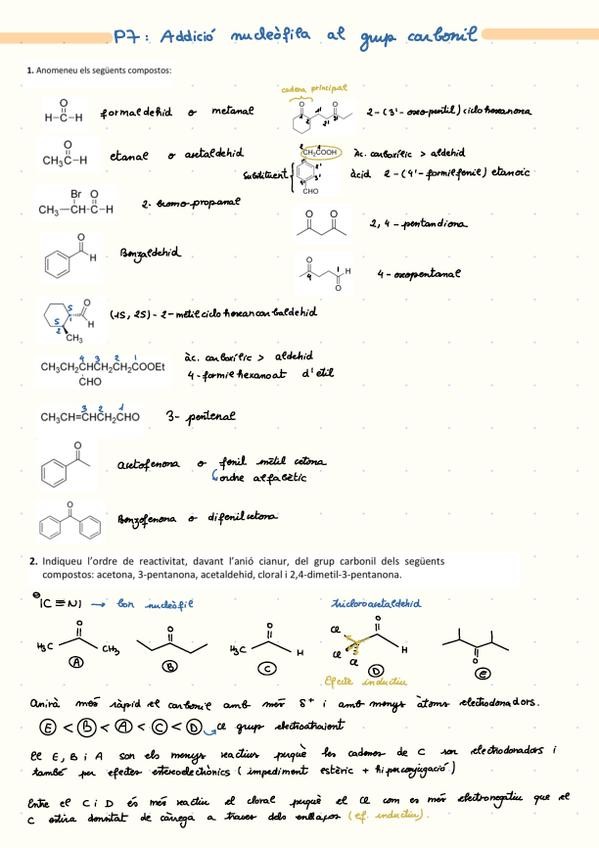 P7: Addició nucleòfila al grup carbonil
1. Anomeneu els següents compostos:
O
H-C-H
formaldehid o metanal
O
CH₃C-H
etanal o acetaldehid
Br O
CH₃-CH-C-H
2-bromo-propanal
O
H
Benzaldehid
O
H
CH₃
S
1
S
2
(1S, 2S) - 2-metilciclohexancarbaldehid
4 3 2 1
CH₃CH₂CHCH₂CH₂COOEt
CHO
àc. carboxílic > aldehid
4-formilhexanoat d'etil
3 2 1
CH₃CH=CHCH₂CHO
3-pentenal
O
acetofenona o fenil metil cetona
ordre alfabètic
O
Benzofenona o difenilcetona
cadena principal
O O
2-(3'-oxopentil)ciclohexanona
CH₂COOH
CHO
Substituent
Àc. carboxílic > aldehid
àcid 2-(4'-formilfenil) etanoic
O O
2,4-pentandiona
O
4
1
H
O
4-oxopentanal
2. Indiqueu l'ordre de reactivitat, davant l'anió cianur, del grup carbonil dels següents
compostos: acetona, 3-pentanona, acetaldehid, cloral i 2,4-dimetil-3-pentanona.
⊖|C≡N| → bon nucleòfil
tricloroacetaldehid
O
H₃C CH₃
A
O
B
O
H₃C H
C
O
Cl
Cl
Cl
H
D
Efecte inductiu
O
E
Anirà més ràpid el carbonil amb més δ+ i amb menys àtoms electrodonadors.
E < B < A < C < D → Cl grup electroatraient
El E, B i A son els menys reactius perquè les cadenes de C son electrodonadors i
també per efectes estereoelectrònics (impediment estèric + hiperconjugació)
Entre el C i D és més reactiu el cloral perquè el Cl com es més electronegatiu que el
C estira densitat de càrrega a traves dels enllaços (ef. inductiu).